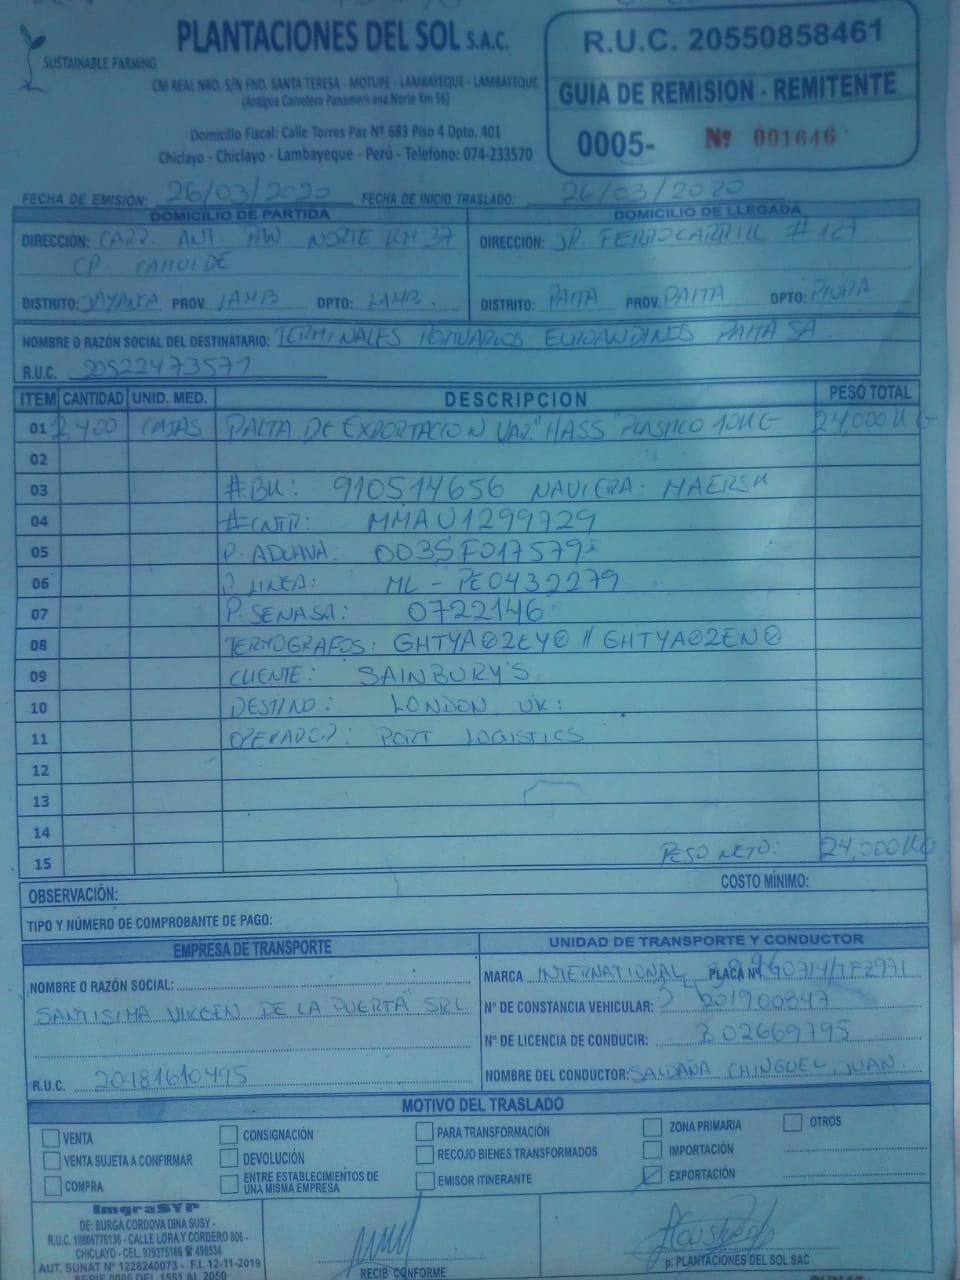 PLANTACIONES DEL SOL S.A.C.
SUSTAINABLE FARMING
CM REAL NRO. S/N FND. SANTA TERESA - MOTUPE - LAMBAYEQUE - LAMBAYEQUE
(Antigua Carretera Panamericana Norte Km 56)
Domicilio Fiscal: Calle Torres Paz Nº 683 Piso 4 Dpto. 401
Chiclayo - Chiclayo - Lambayeque - Perú - Telefono: 074-233570
R.U.C. 20550858461
GUIA DE REMISION - REMITENTE
0005- Nº 001646
FECHA DE EMISIÓN: 26/03/2020 FECHA DE INICIO TRASLADO: 26/03/2020
DOMICILIO DE PARTIDA
DIRECCIÓN: CARR. ANT. PAN. NORTE KM 37
CP. CAHUIDE
DISTRITO: JAYANCA PROV. LAMB DPTO: LAMB.
DOMICILIO DE LLEGADA
DIRECCIÓN: JR. FERROCARRIL # 127
DISTRITO: PAITA PROV. PAITA DPTO: PIURA
NOMBRE O RAZÓN SOCIAL DEL DESTINATARIO: TERMINALES PORTUARIOS EUROANDINOS PAITA SA.
R.U.C. 20522473571
ITEM CANTIDAD UNID. MED. DESCRIPCION PESO TOTAL
01 2,400 CAJAS PALTA DE EXPORTACION VAR. "HASS" PLASTICO 10KG 24,000KG
02
03 #BK: 910514656 NAVIERA: MAERSK
04 #CNTR: MMAU1299729
05 P. ADUANA: 003SF017579
06 P. LINEA: ML - PE0432279
07 P. SENASA: 0722146
08 TERMOGRAFOS: GHTYA02EY0 // GHTYA02EN0
09 CLIENTE: SAINBURY'S
10 DESTINO: LONDON UK:
11 OPERADOR: PORT LOGISTICS
12
13
14
15 PESO NETO: 24,000KG
OBSERVACIÓN: COSTO MÍNIMO:
TIPO Y NÚMERO DE COMPROBANTE DE PAGO:
EMPRESA DE TRANSPORTE
NOMBRE O RAZÓN SOCIAL:
SANTISIMA VIRGEN DE LA PUERTA SRL
R.U.C. 20481610495
UNIDAD DE TRANSPORTE Y CONDUCTOR
MARCA INTERNATIONAL PLACA Nº
Nº DE CONSTANCIA VEHICULAR: 201900847
Nº DE LICENCIA DE CONDUCIR: B02669795
NOMBRE DEL CONDUCTOR: SALDAÑA CHINGUEL JUAN
MOTIVO DEL TRASLADO
VENTA CONSIGNACIÓN PARA TRANSFORMACIÓN ZONA PRIMARIA OTROS
VENTA SUJETA A CONFIRMAR DEVOLUCIÓN RECOJO BIENES TRANSFORMADOS IMPORTACIÓN
COMPRA ENTRE ESTABLECIMIENTOS DE UNA MISMA EMPRESA EMISOR ITINERANTE EXPORTACIÓN
ImgraSYP
DE: BURGA CORDOVA DINA SUSY -
R.U.C. 10806776136 - CALLE LORA Y CORDERO 806 -
CHICLAYO - CEL. 979275166 ☎ 496534
AUT. SUNAT Nº 1228240073 - F.I. 12-11-2019
SERIE 0005 DEL 1551 AL 2050
RECIBI CONFORME
p. PLANTACIONES DEL SOL SAC